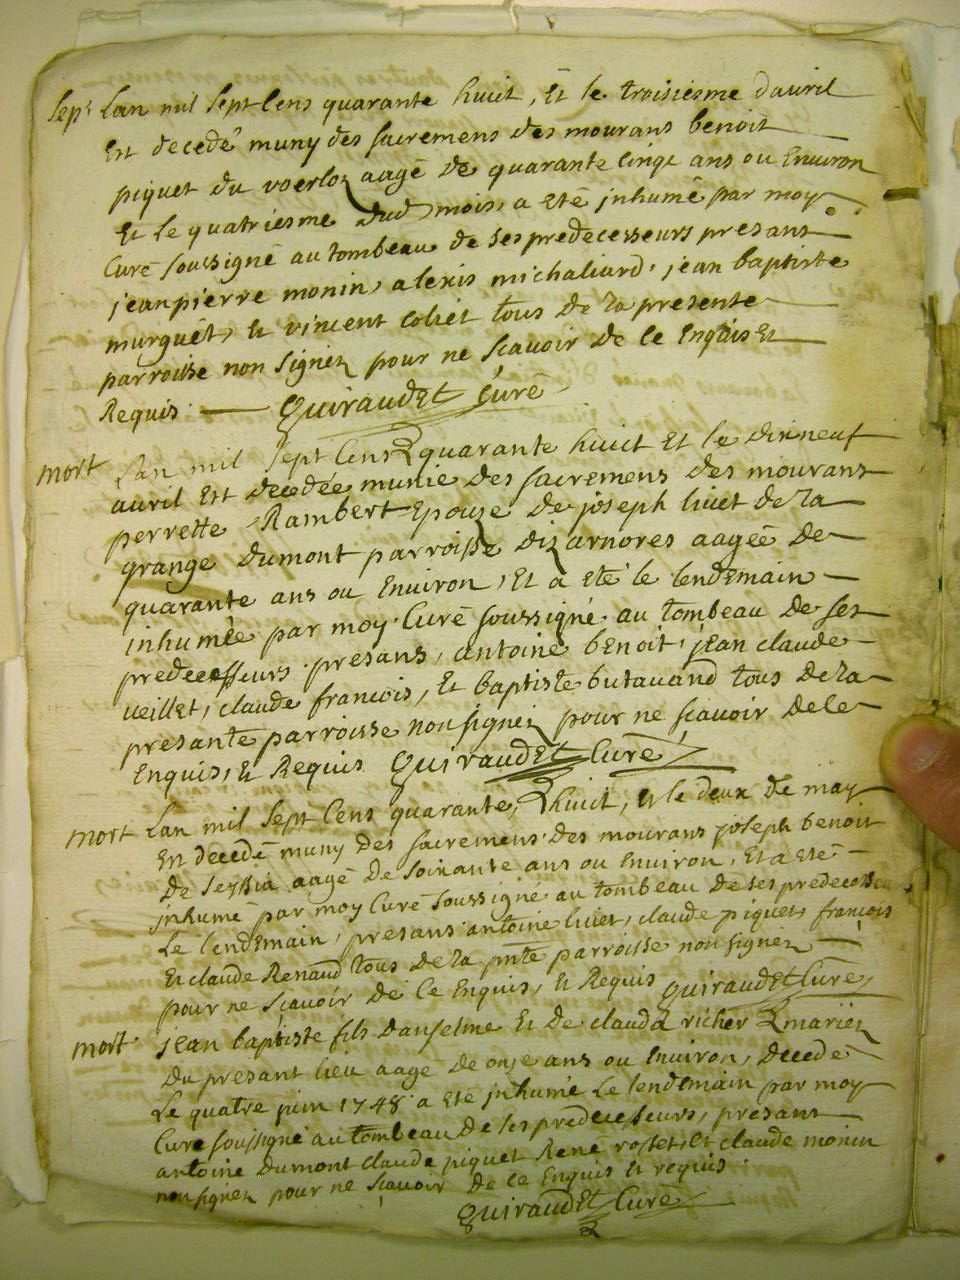 sepr Lan mil sept cens quarante huict, Et le troisiesme dauril
Est decedé muny des sacremens des mourans benoit
piquet du voerloz aagé de quarante cinqt ans ou Environ
Et le quatriesme dud mois, a eté jnhumé par moy
Curé soussigné au tombeau de ses predecesseurs presans
jean pierre monin, alexis michaliard, jean baptiste
murguet, Et vincent coliet tous de la presente
parroisse non signez pour ne scavoir de ce Enquis Et
Requis Guiraudet Curé
mort Lan mil sept cens quarante huict Et le dixneuf
auril Est decedée munie des sacremens des mourans
perrette Rambert Epouse de joseph liuet de la
grange dumont parroisse dizarnores aagée de
quarante ans ou Environ, Et a eté le lendemain
inhumée par moy Curé soussigné au tombeau de ses
predecesseurs presans, antoine benoit, jean claude
ueillet, claude francois, Et baptiste butauand tous de la
presante parroisse non signez pour ne scavoir de ce
Enquis, Et Requis Guiraudet Curé
mort Lan mil sept cens quarante, huict, Et le deux de may
Est decedé muny des sacremens des mourans joseph benoit
de Seyssia aagé de soixante ans ou Environ, Et a eté
jnhumé par moy Curé soussigné au tombeau de ses predecesseu
Le lendemain, presans antoine liuet, claude piquet, francois
Et claude Renaud tous de la pnte parroisse non signez
pour ne scavoir de Ce Enquis, Et Requis Guiraudet Curé
mort jean baptiste fils danselme Et de clauda richer mariez
Du presant lieu aagé de onze ans ou Environ, Decedé
Le quatre juin 1748 a eté jnhumé Le lendemain par moy
Curé soussigné au tombeau de ses predecesseurs, presans
antoine dumont claude piquet René rostet, Et claude monin
non signez pour ne scavoir de ce Enquis Et requis
Guiraudet Curé